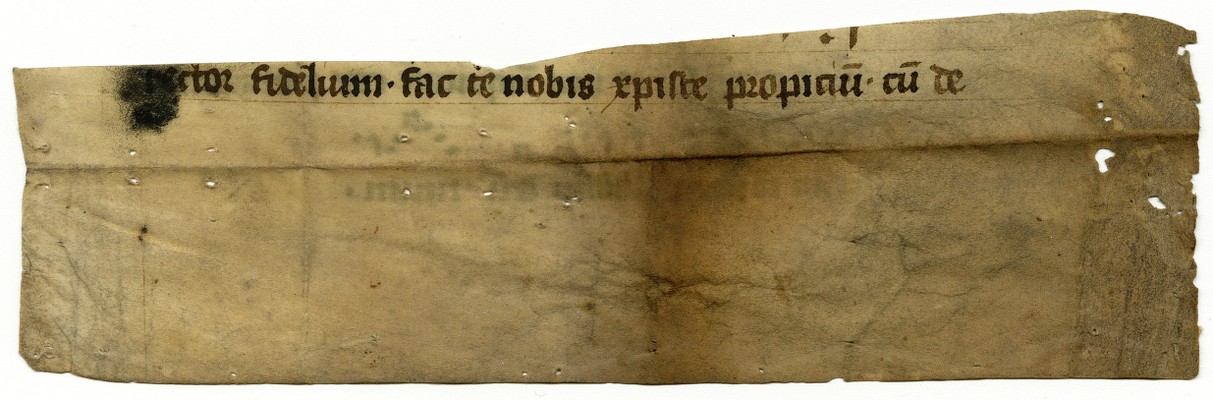 rector fidelium · fac te nobis xpiste propiciū · cū de